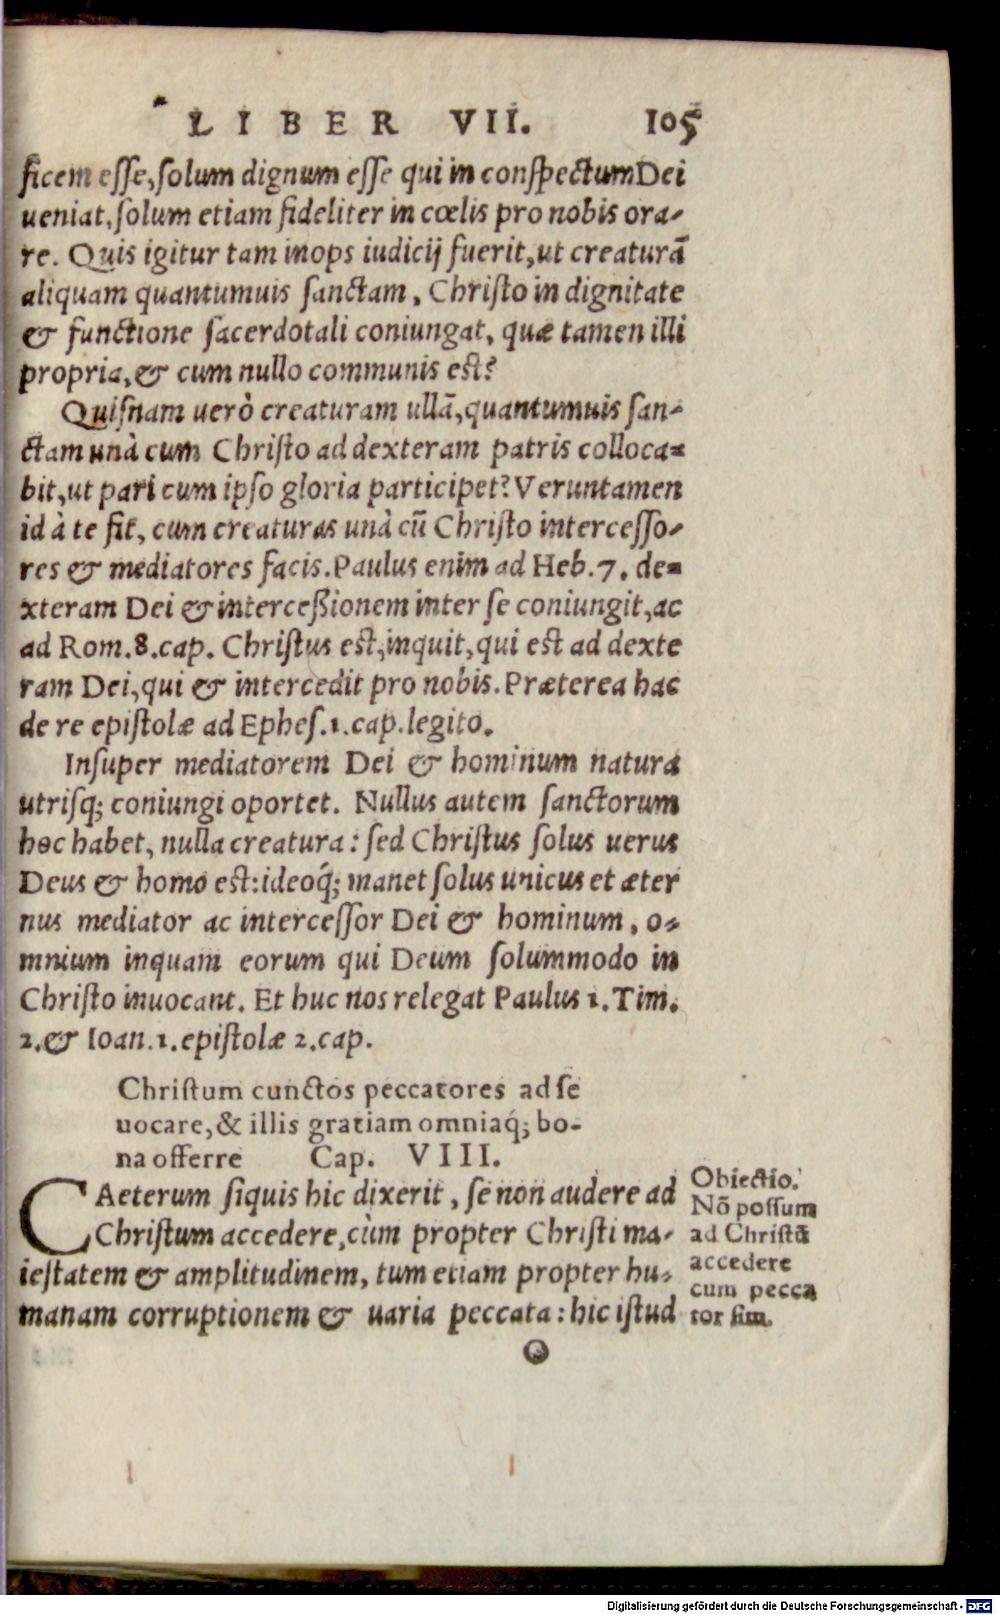 LIBER VII. 105
ficem esse, solum dignum esse qui in conspectum Dei
ueniat, solum etiam fideliter in cœlis pro nobis ora-
re. Quis igitur tam inops iudicij fuerit, ut creaturā
aliquam quantumuis sanctam, Christo in dignitate
& functione sacerdotali coniungat, quæ tamen illi
propria, & cum nullo communis est?
Quisnam uerò creaturam ullā, quantumuis san-
ctam unà cum Christo ad dexteram patris colloca-
bit, ut pari cum ipso gloria participet? Veruntamen
id à te fit, cum creaturas unà cū Christo intercesso-
res & mediatores facis. Paulus enim ad Heb. 7. de-
xteram Dei & interceßionem inter se coniungit, ac
ad Rom. 8. cap. Christus est, inquit, qui est ad dexte
ram Dei, qui & intercedit pro nobis. Præterea hac
de re epistolæ ad Ephes. 1. cap. legito.
Insuper mediatorem Dei & hominum natura
utrisq; coniungi oportet. Nullus autem sanctorum
hoc habet, nulla creatura: sed Christus solus uerus
Deus & homo est: ideoq́; manet solus unicus et æter
nus mediator ac intercessor Dei & hominum, o-
mnium inquam eorum qui Deum solummodo in
Christo inuocant. Et huc nos relegat Paulus 1. Tim.
2. & Ioan. 1. epistolæ 2. cap.
Christum cunctos peccatores ad se
uocare, & illis gratiam omniaq́; bo-
na offerre Cap. VIII.
CAeterum siquis hic dixerit, se non audere ad
Christum accedere, cùm propter Christi ma-
iestatem & amplitudinem, tum etiam propter hu-
manam corruptionem & uaria peccata: hic istud
Obiectio.
Nō possum
ad Christū
accedere
cum pecca
tor sim.
O
Digitalisierung gefördert durch die Deutsche Forschungsgemeinschaft - DFG